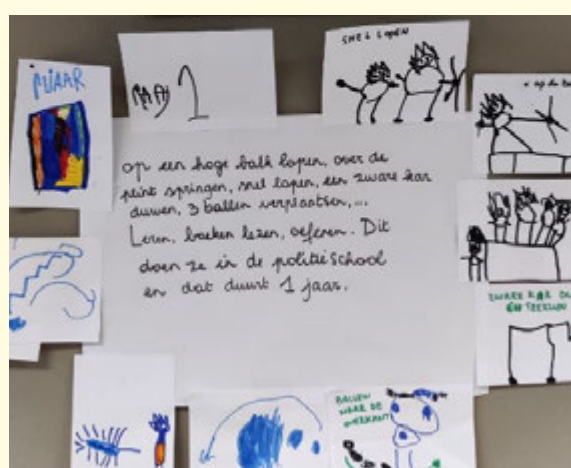 SNEL LOPEN
1
op een hoge balk lopen, over de
plint springen, snel lopen, een zware kar
duwen, 3 ballen verplaatsen,...
Leren, boeken lezen, oefenen. Dit
doen ze in de politieschool
en dat duurt 1 jaar.
ZWARE KAR
BALLEN
NAAR DE
OVERKANT